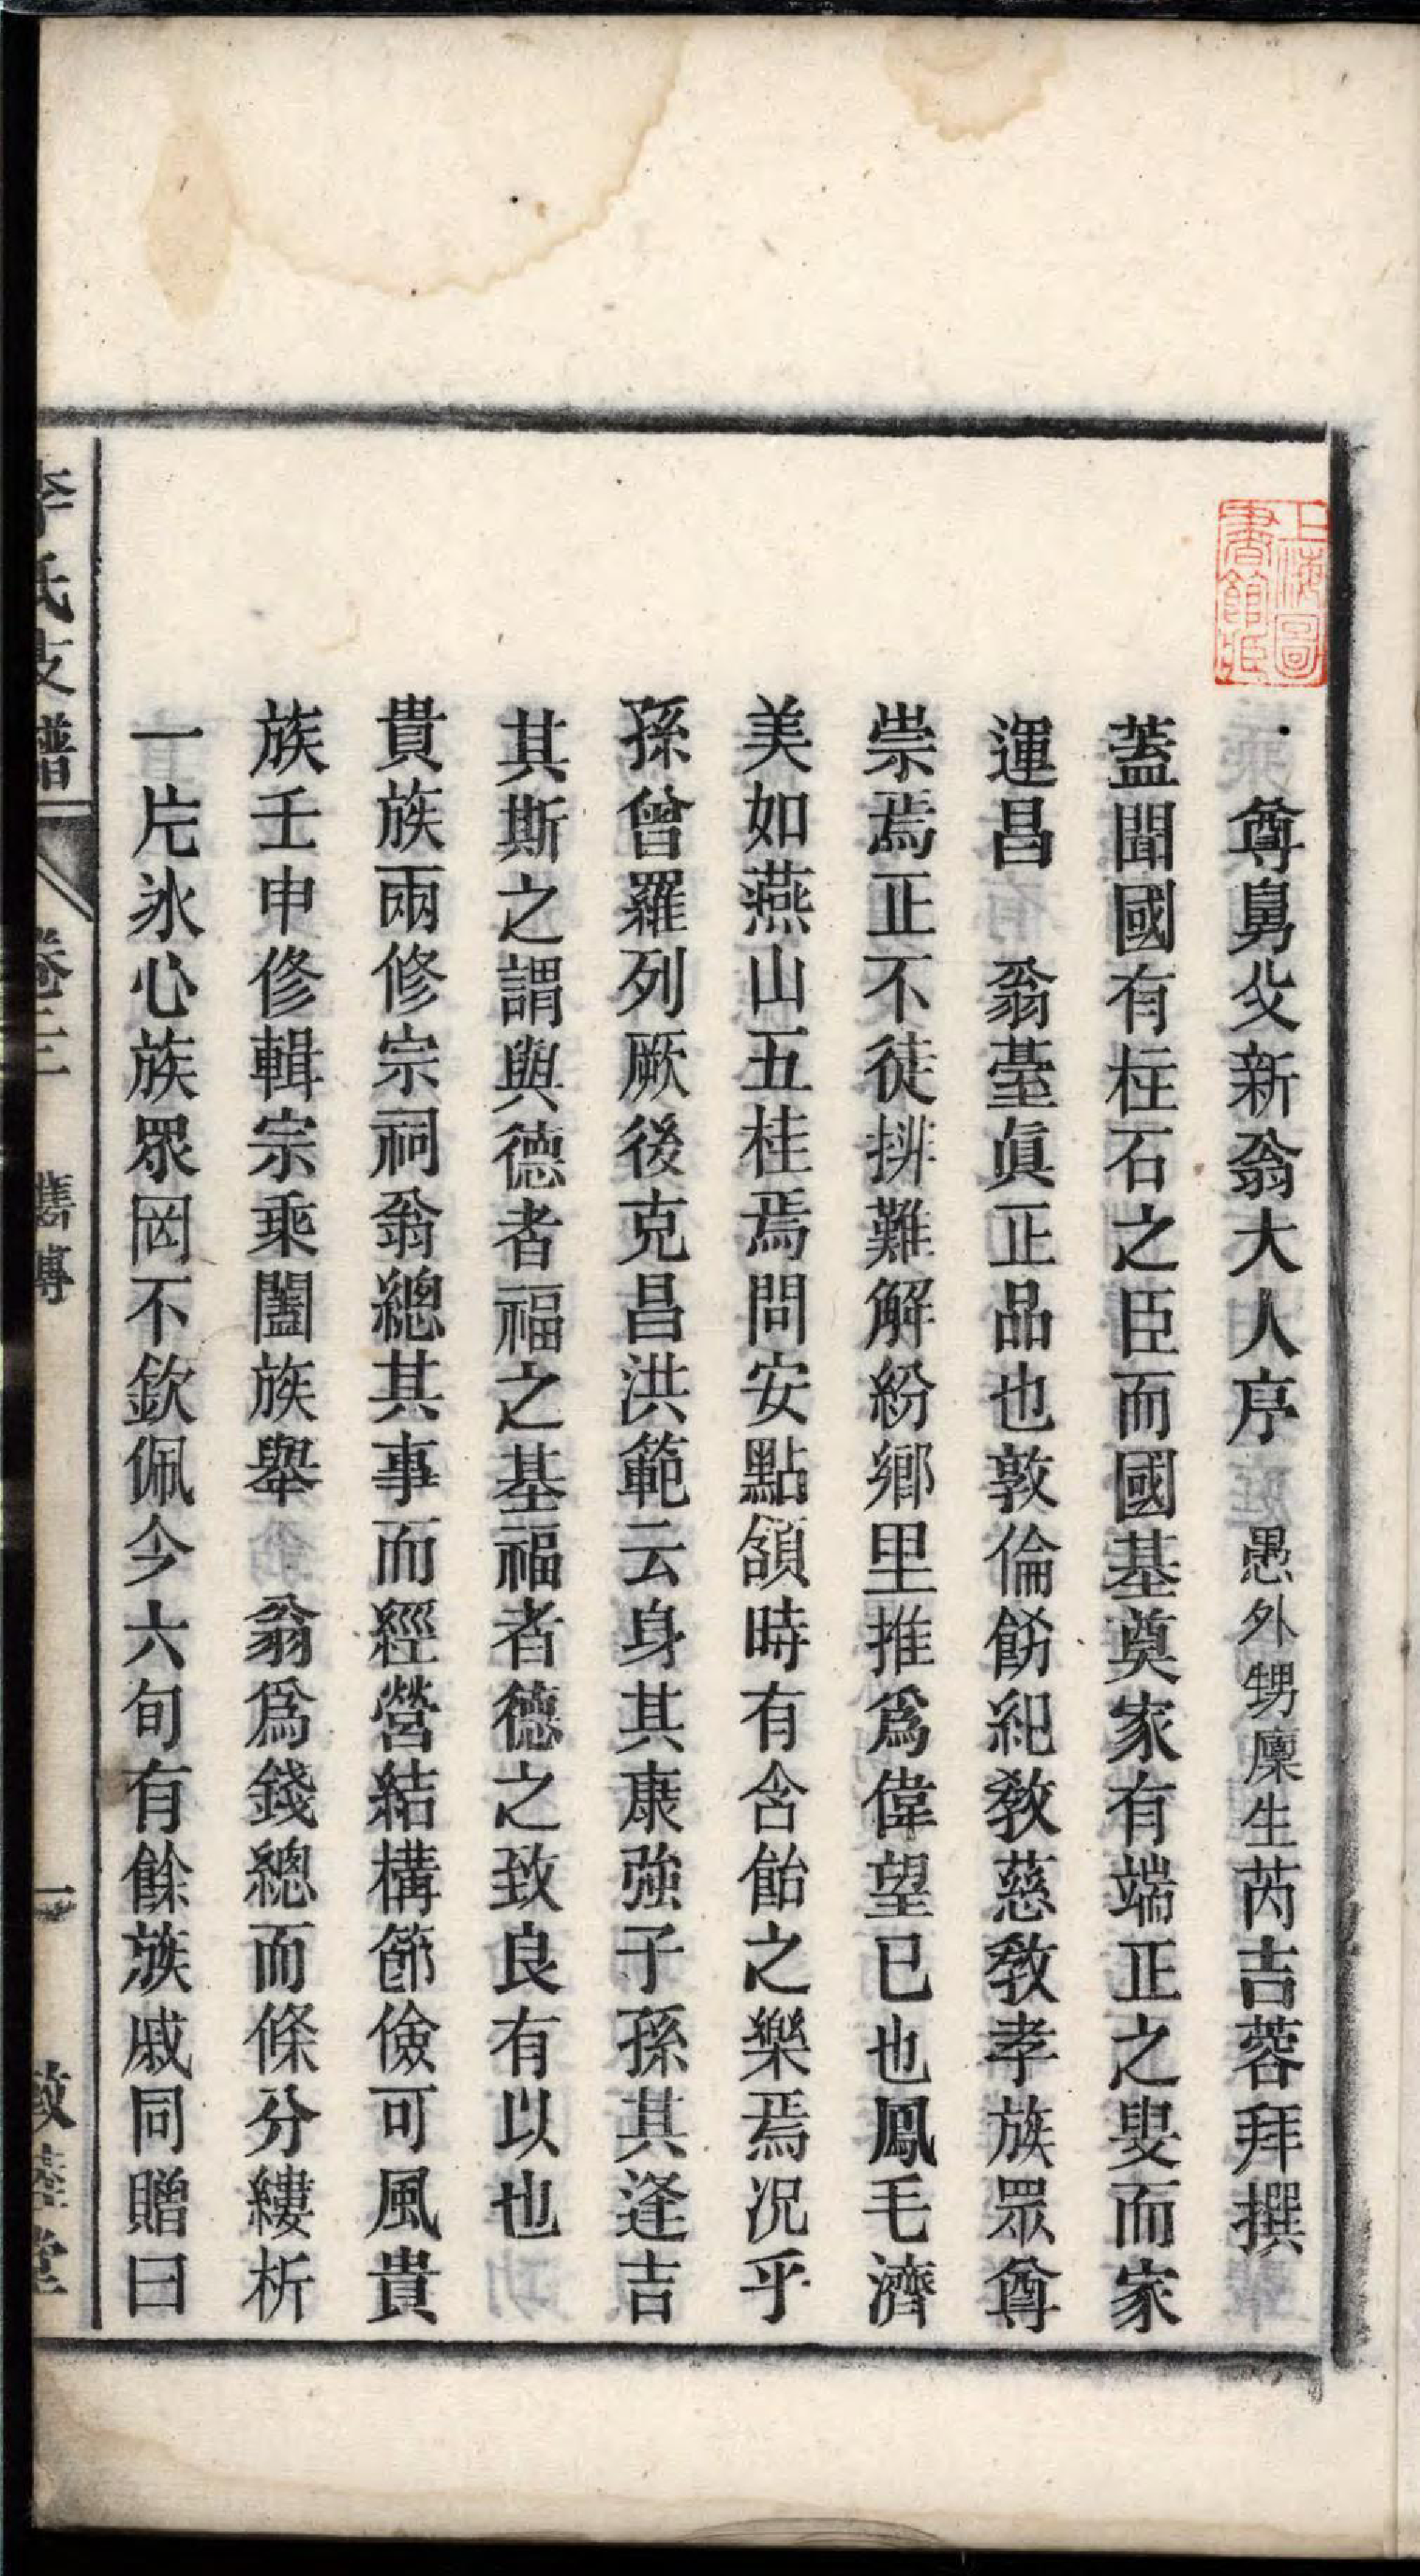 上海圖書館藏
尊舅父新翁大人序 愚外甥廩生芮吉蓉拜撰
蓋聞國有柱石之臣而國基奠家有端正之叟而家
運昌 翁臺眞正品也敦倫飭紀敎慈敎孝族眾尊
崇焉正不徒排難解紛鄉里推爲偉望已也鳳毛濟
美如燕山五桂焉問安點頷時有含飴之樂焉况乎
孫曾羅列厥後克昌洪範云身其康強子孫其逢吉
其斯之謂與德者福之基福者德之致良有以也
貴族兩修宗祠翁總其事而經營結構節儉可風貴
族壬申修輯宗乘闔族舉 翁爲錢總而條分縷析
一片氷心族眾罔不欽佩今六旬有餘族戚同贈曰
李氏支譜 卷三 舊傳 一 敦睦堂